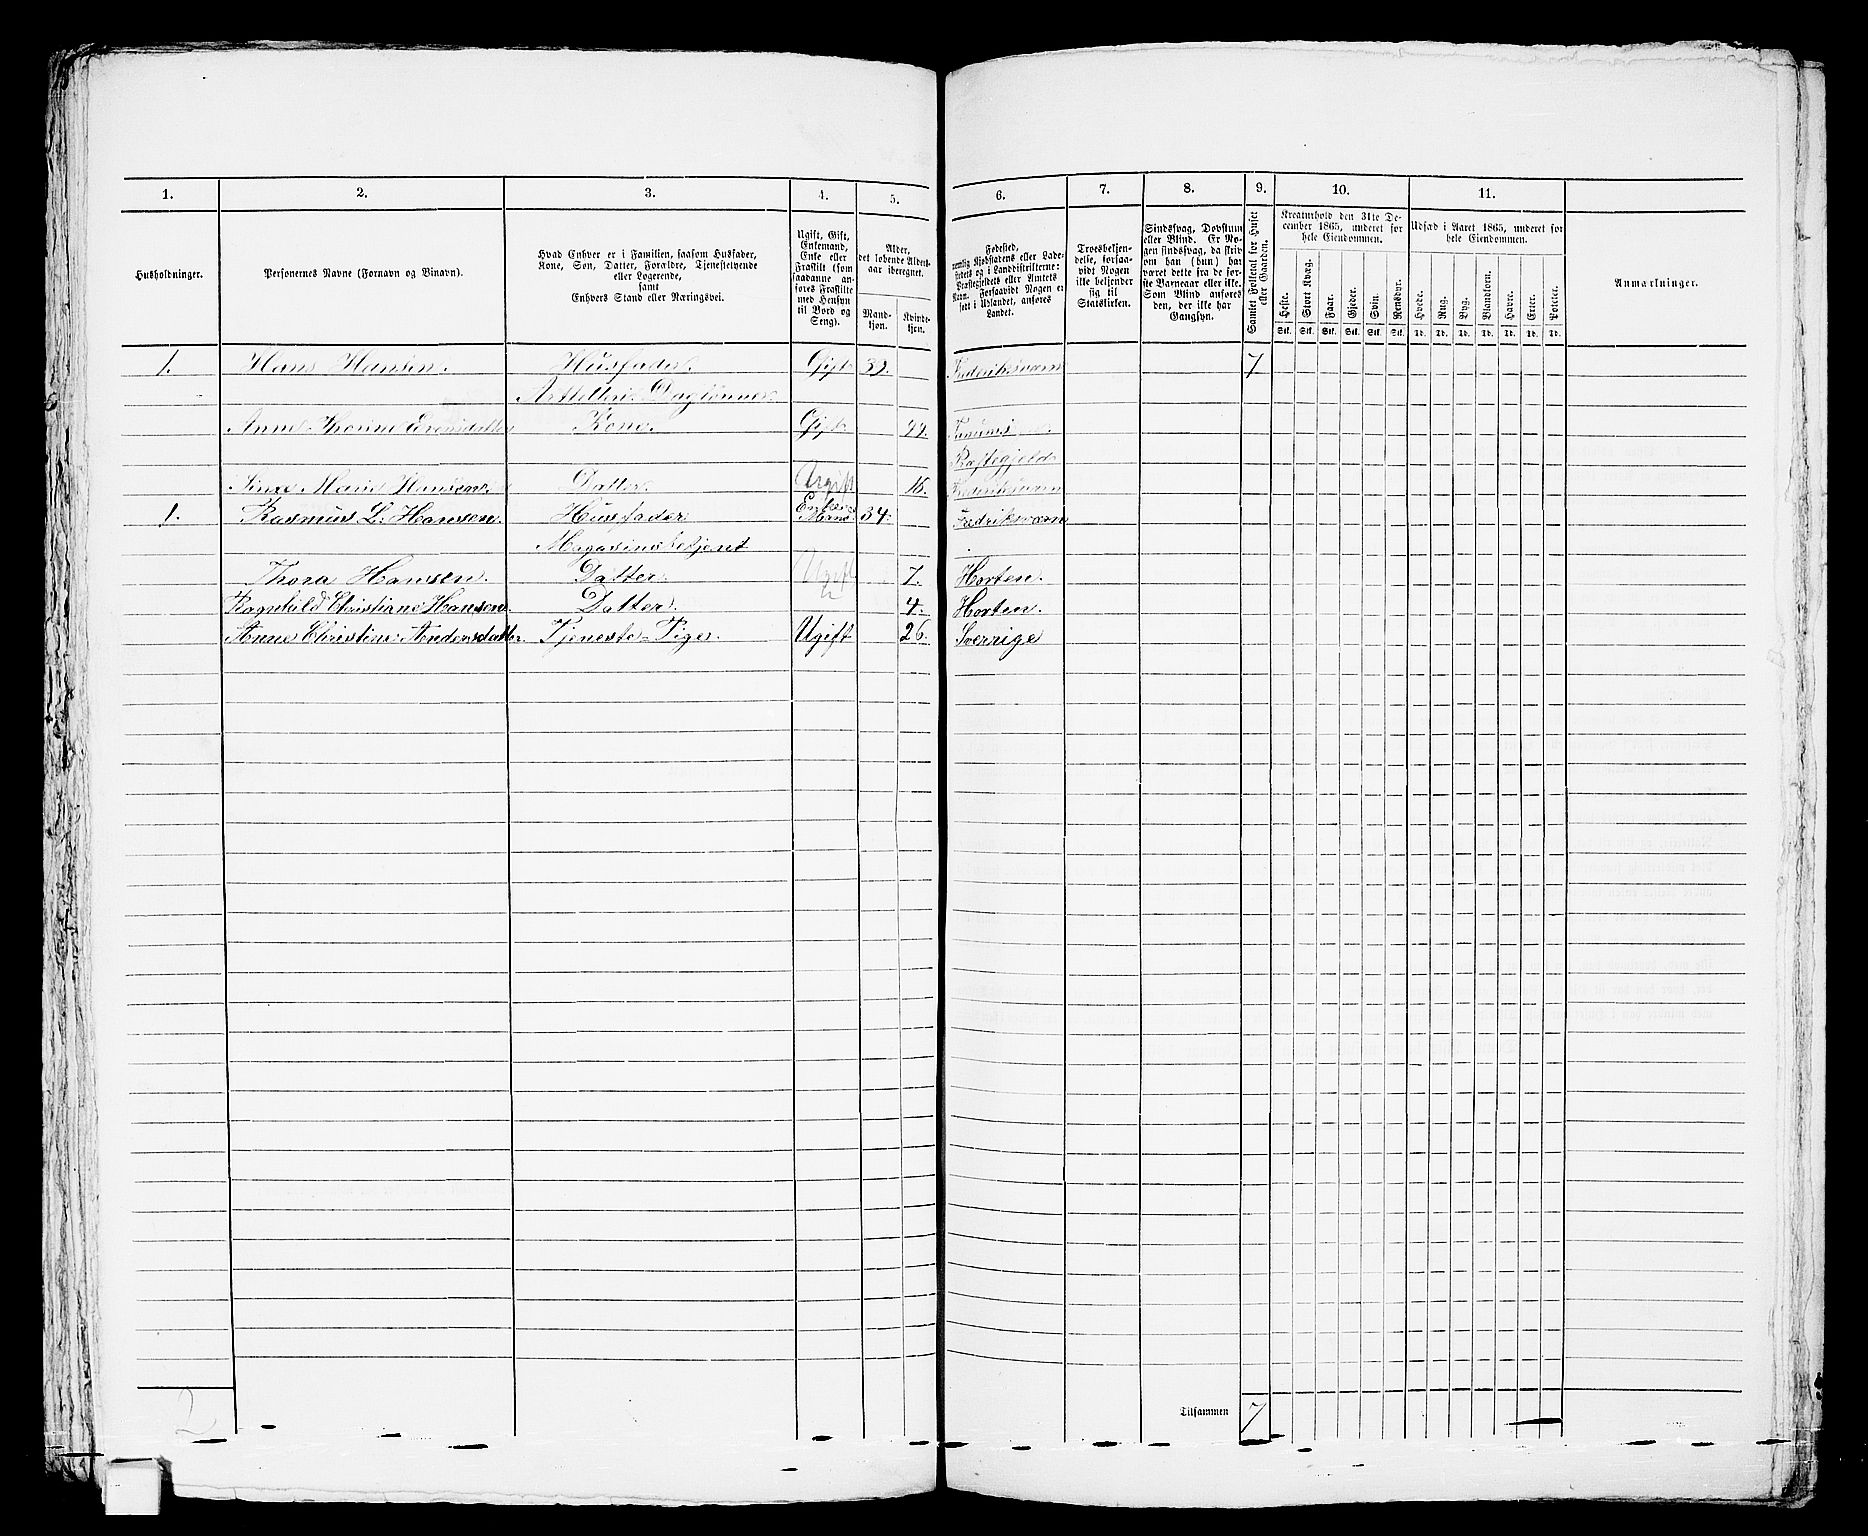 1. 2. 3. 4. 5. 6. 7. 8. 9. 10. 11.
Husholdninger.
Personernes Navne (Fornavn og Binavn).
Hvad Enhver er i Familien, saasom Husfader,
Kone, Søn, Datter, Forældre, Tjenestetyende
eller Logerende,
samt
Enhvers Stand eller Næringsvei.
Ugift, Gift,
Enkemand,
Enke eller
Fraskilt (som
saadanne an-
føres Fraskilte
med Hensyn
til Bord og
Seng).
Alder,
det løbende Alders-
aar iberegnet.
Mand-
kjøn.
Kvinde-
kjøn.
Fødested,
nemlig Kjøbstadens eller Lade-
stedets og i Landdistrikterne:
Præstegjeldets eller Amtets
Navn. Forsaavidt Nogen er
født i Udlandet, anføres
Landet.
Troesbekjen-
delse, forsaa-
vidt Nogen
ikke bekjender
sig til
Statskirken.
Sindssvag, Døvstum
eller Blind. Er No-
gen sindssvag, da skriv
om han (hun) har
været dette fra de før-
ste Barneaar eller ikke.
Som Blind anføres
den, der ikke har
Gangsyn.
Samlet Folketal for Huset
eller Gaarden.
Kreaturhold den 31te De-
cember 1865, underet før
hele Eiendommen.
Heste. Stort Kvæg. Faar. Gjeder. Svin. Rensdyr.
Stk. Stk. Stk. Stk. Stk. Stk.
Udsæd i Aaret 1865, underet for
hele Eiendommen.
Hvede. Rug. Byg. Blandkorn. Havre. Erter. Poteter.
Td. Td. Td. Td. Td. Td. Td.
Anmærkninger.
1. Hans Hansen. Husfader. Gift 39. Frederiksværn 7
Artilleri Daglønner.
Anne Thorine Evensdatter Kone. Gift 44. Tanums
Præstegjeld
Sina Marie Hansen. Datter. Ugift 16. Frederiksværn
1. Rasmus L. Hansen. Husfader Enke Mand 34. Fredriksværn
Magasinsbetjent
Thora Hansen. Datter. Ugift 7. Horten.
Ragnhild Christiane Hansen. Datter. 4. Horten.
Anne Christine Andersdatter. Tjeneste-Pige. Ugift 26. Sverrige
2 Tilsammen 7